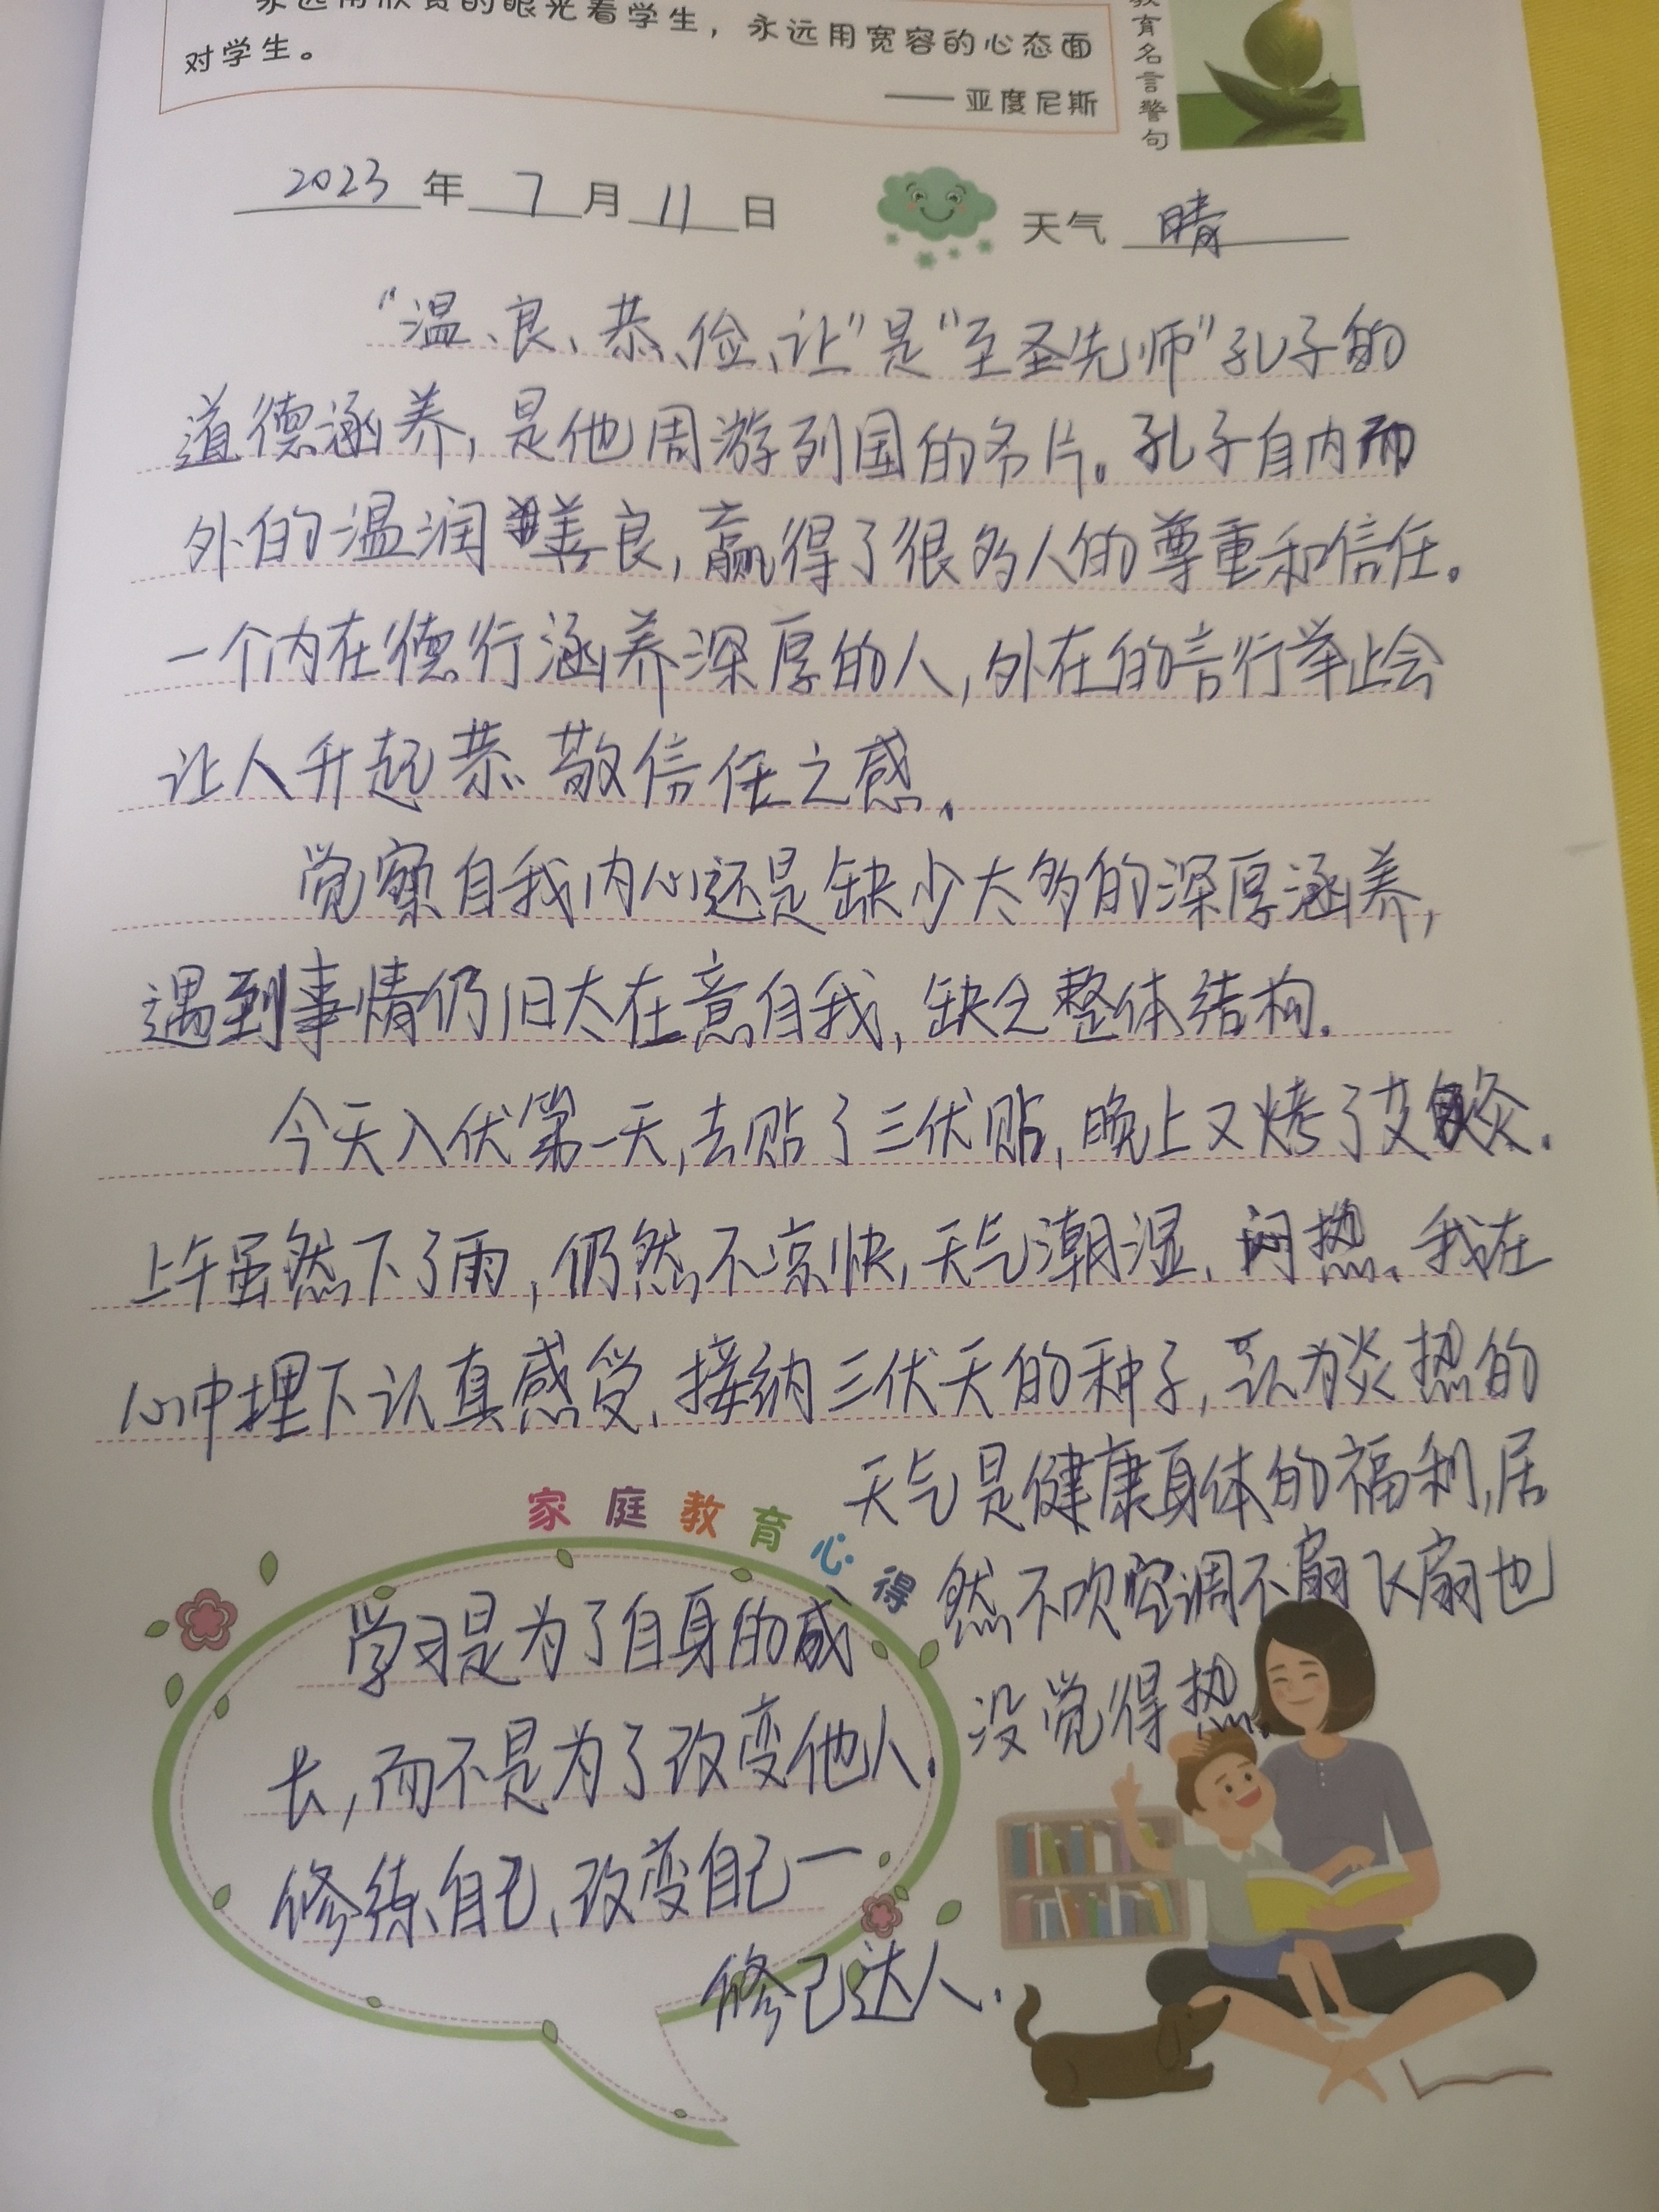 永远用欣赏的眼光看学生，永远用宽容的心态面
对学生。
——亚度尼斯
教育名言警句
2023年7月11日
天气 晴
“温、良、恭、俭、让”是“至圣先师”孔子的
道德涵养，是他周游列国的名片。孔子自内而
外的温润善良，赢得了很多人的尊重和信任。
一个内在德行涵养深厚的人，外在的言行举止会
让人升起恭敬信任之感。
觉察自我内心还是缺少太多的深厚涵养，
遇到事情仍旧太在意自我，缺乏整体结构。
今天入伏第一天，去贴了三伏贴，晚上又烤了艾灸。
上午虽然下了雨，仍然不凉快，天气潮湿、闷热。我在
心中埋下认真感受、接纳三伏天的种子，认为炎热的
天气是健康身体的福利，居
然不吹空调不扇飞扇也
没觉得热。
家庭教育心得
学习是为了自身的成
长，而不是为了改变他人.
修练自己、改变自己一
修己达人.